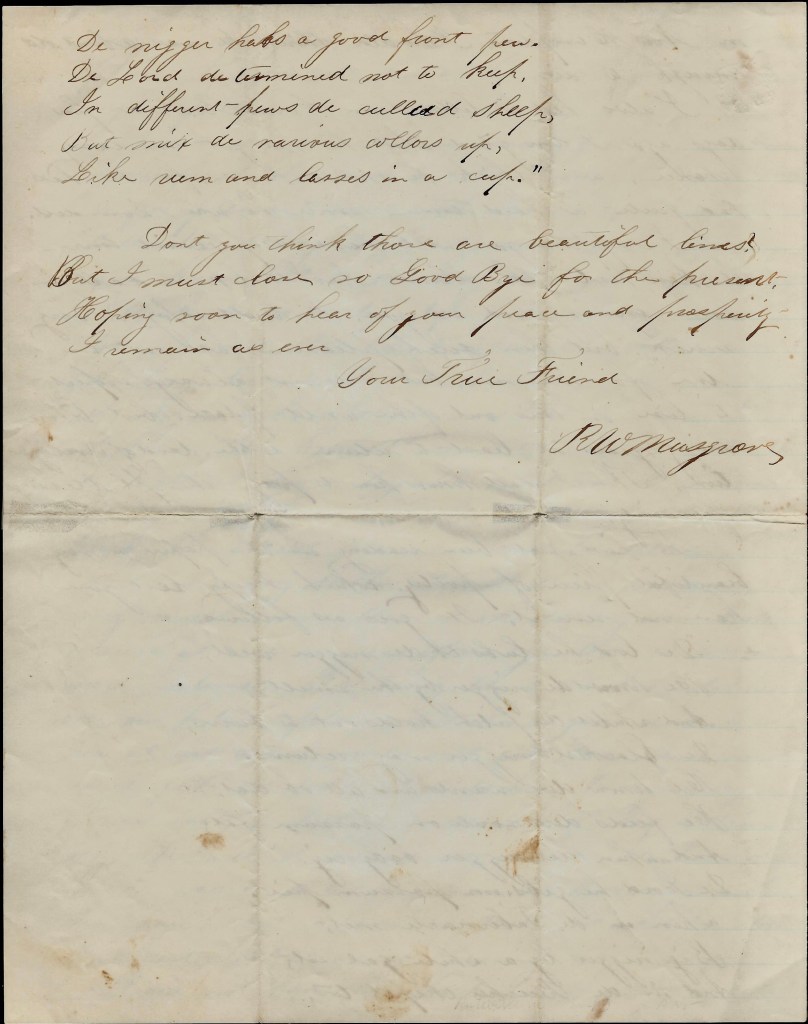 De nigger habs a good front pew.
De Lord determined not to keep,
In different pews de culled sheep,
But mix de various collors up,
Like rum and lasses in a cup."
Dont you think those are beautiful lines?
But I must close so Good Bye for the present.
Hoping soon to hear of your peace and prosperity
I remain as ever
Your True Friend
R W Musgrove